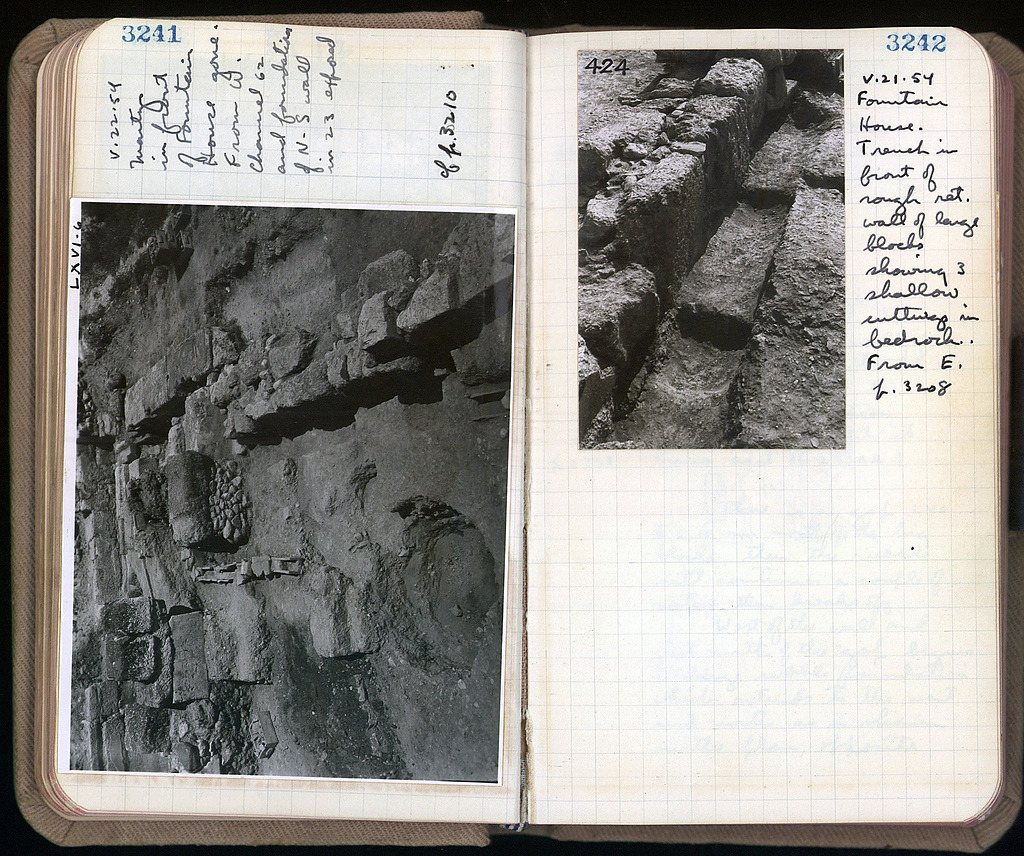 3241
V.22.54
Martyr
in front
of Fountain
House gone.
From W.
Channel 62
and foundation
of N-S wall
in 23 exposed
cf p.3210
LXVI-6
3242
424
V.21.54
Fountain
House.
Trench in
front of
rough ret.
wall of large
blocks
showing 3
shallow
cuttings in
bedrock.
From E.
p.3208